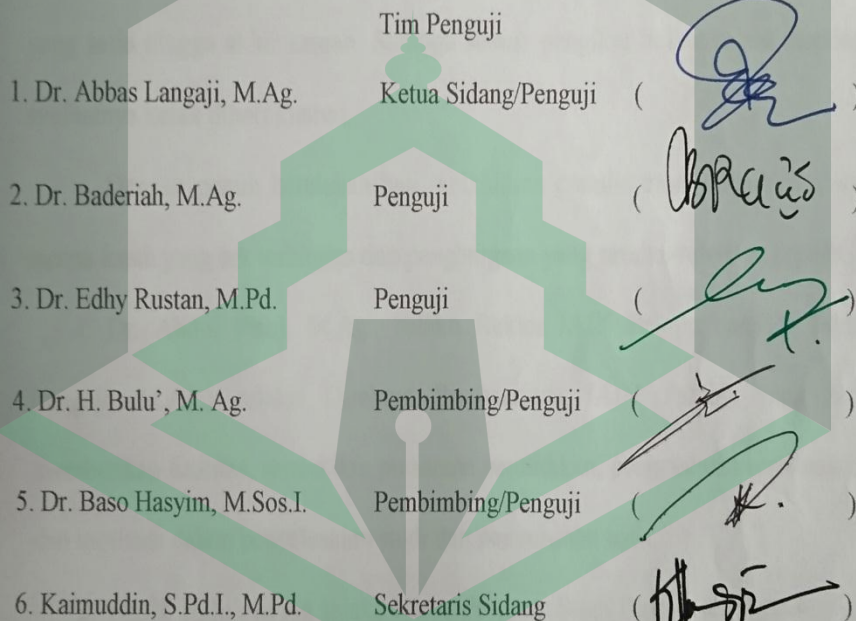 Tim Penguji
1. Dr. Abbas Langaji, M.Ag. Ketua Sidang/Penguji ( )
2. Dr. Baderiah, M.Ag. Penguji ( )
3. Dr. Edhy Rustan, M.Pd. Penguji ( )
4. Dr. H. Bulu’, M. Ag. Pembimbing/Penguji ( )
5. Dr. Baso Hasyim, M.Sos.I. Pembimbing/Penguji ( )
6. Kaimuddin, S.Pd.I., M.Pd. Sekretaris Sidang ( )